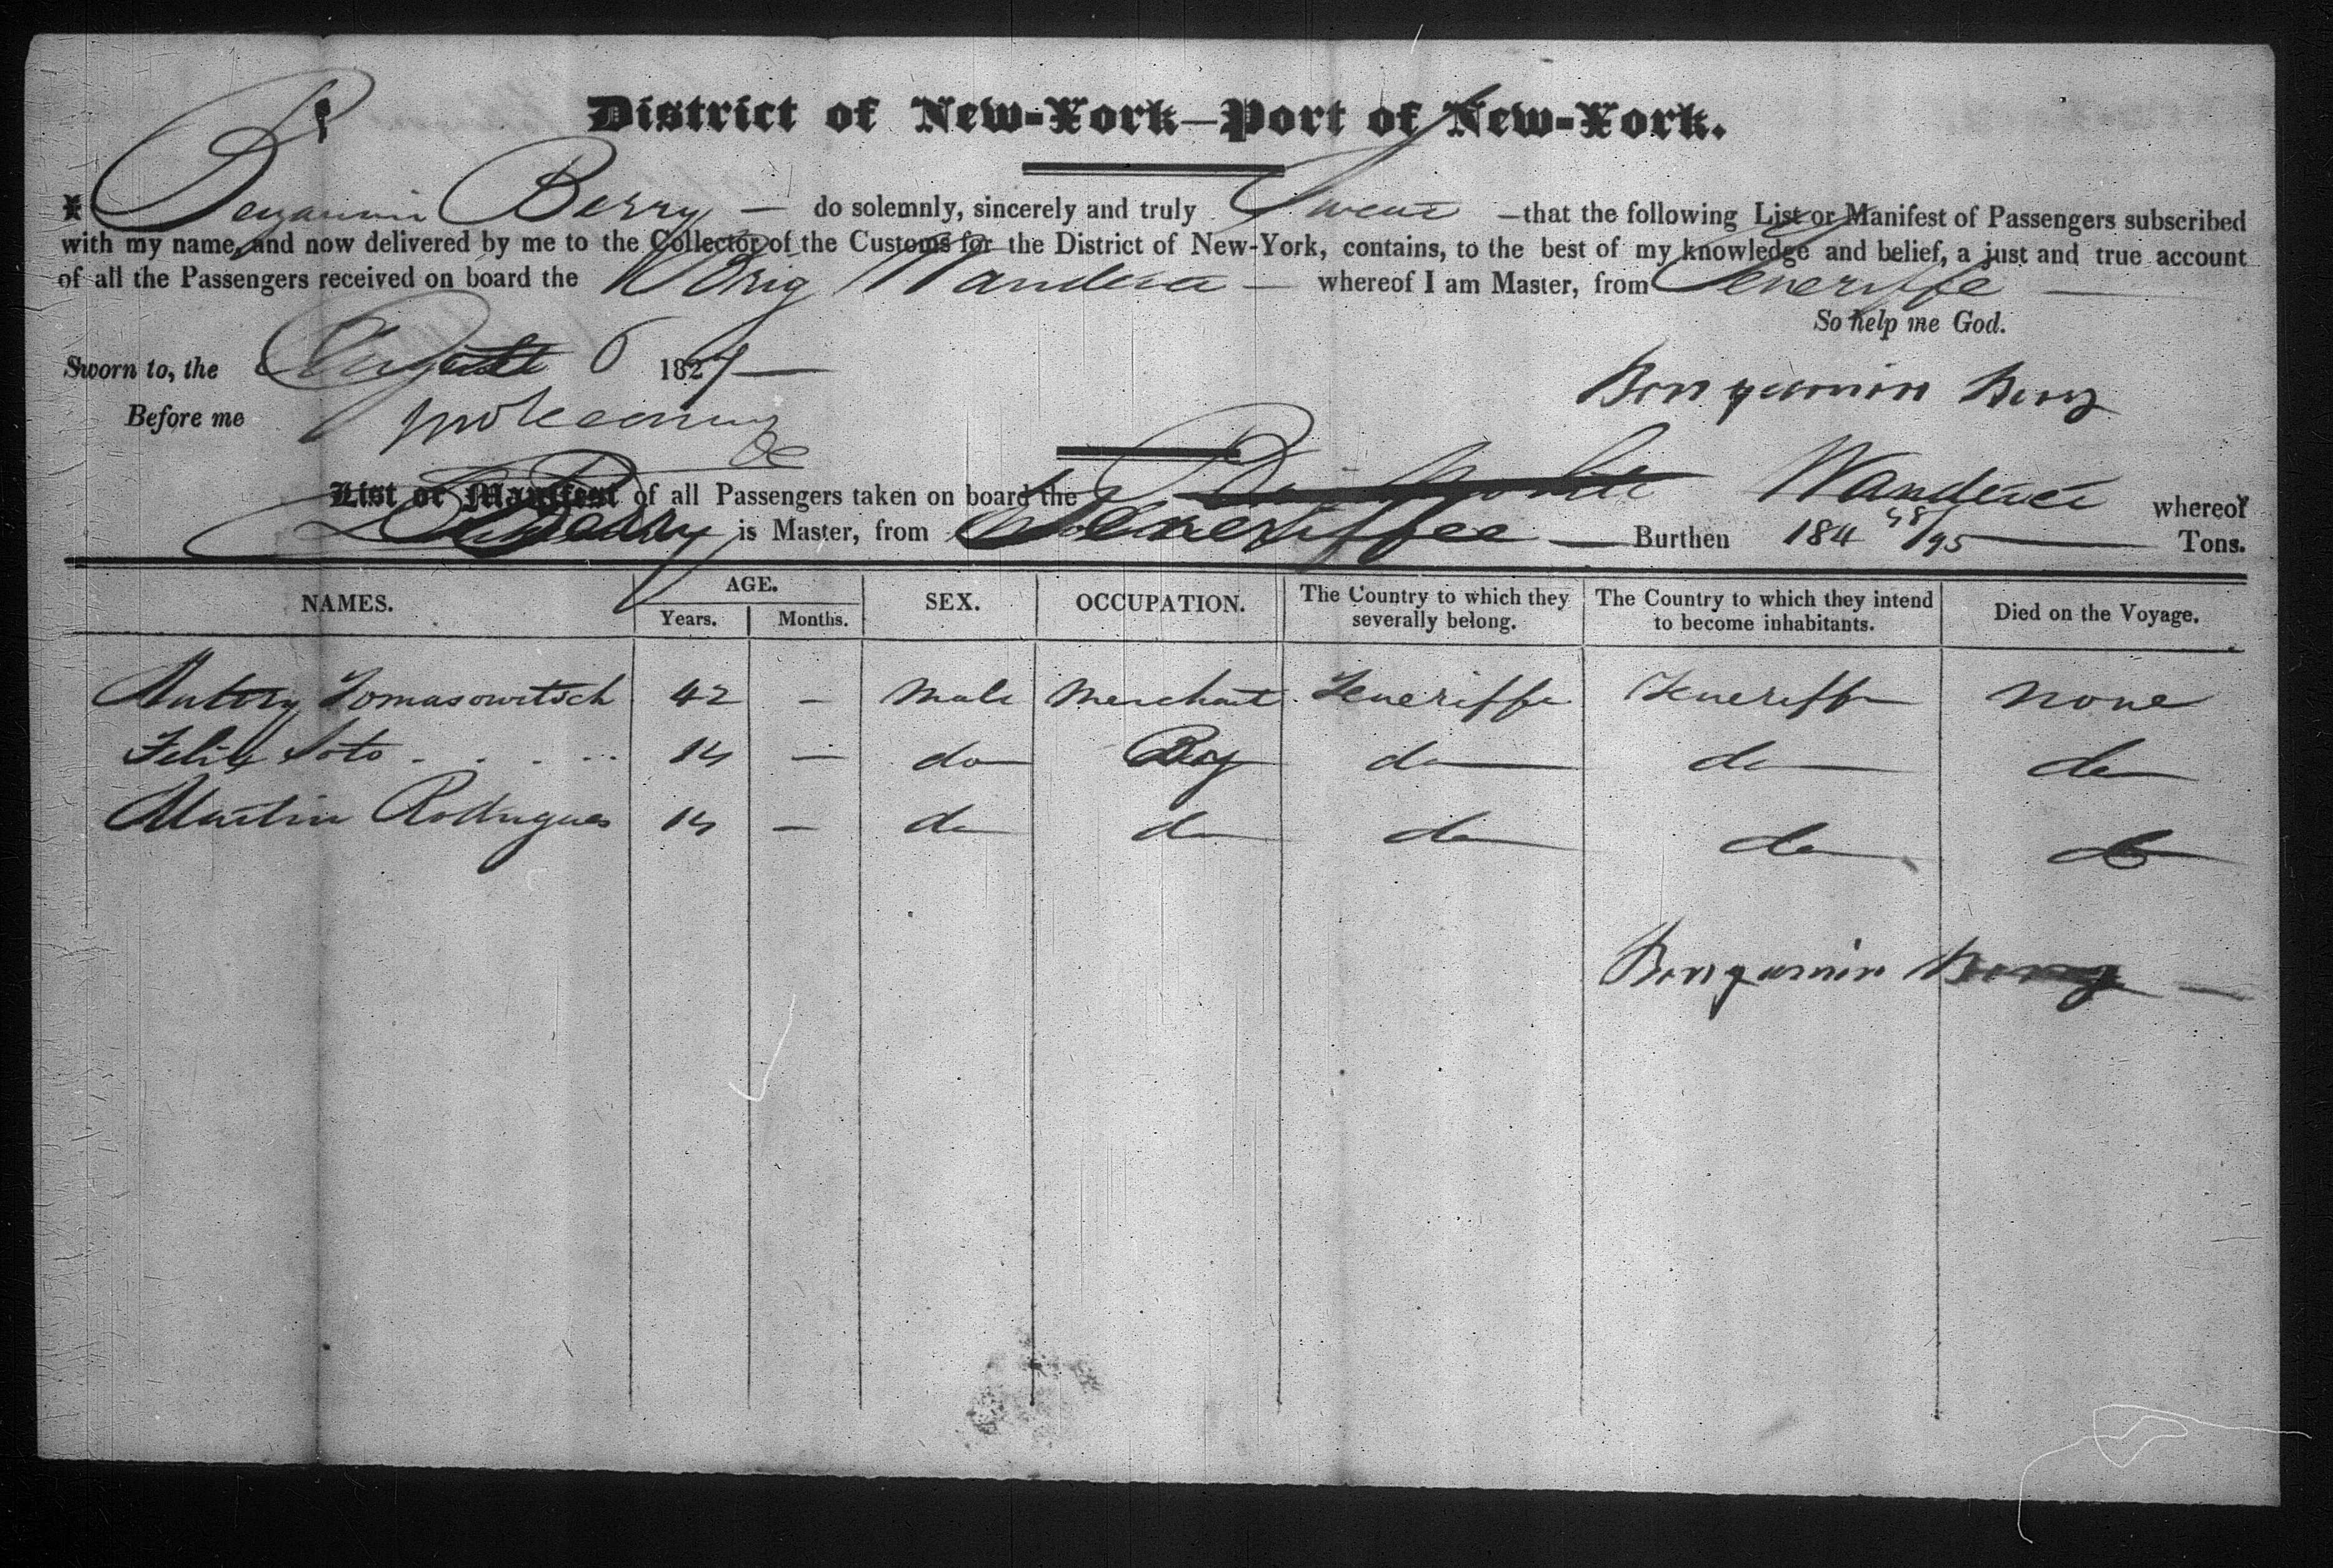 District of New-York—Port of New-York.
I Benjamin Berry — do solemnly, sincerely and truly Swear —that the following List or Manifest of Passengers subscribed
with my name, and now delivered by me to the Collector of the Customs for the District of New-York, contains, to the best of my knowledge and belief, a just and true account
of all the Passengers received on board the Brig Wanderer — whereof I am Master, from Teneriffe —
So help me God.
Sworn to, the August 6 1827 —
Benjamin Berry
Before me
List or Manifest of all Passengers taken on board the Brig Wanderer whereof
Berry is Master, from Teneriffee — Burthen 184 48/95 — Tons.
NAMES. AGE. Years. Months. SEX. OCCUPATION. The Country to which they severally belong. The Country to which they intend to become inhabitants. Died on the Voyage.
Antony Tomasowitsch 42 – Male Merchant Teneriffe Teneriffe none
Felix Soto . . . . . 14 — do Boy do do do
Martin Rodrigues 14 – do do do do do
Benjamin Berry —